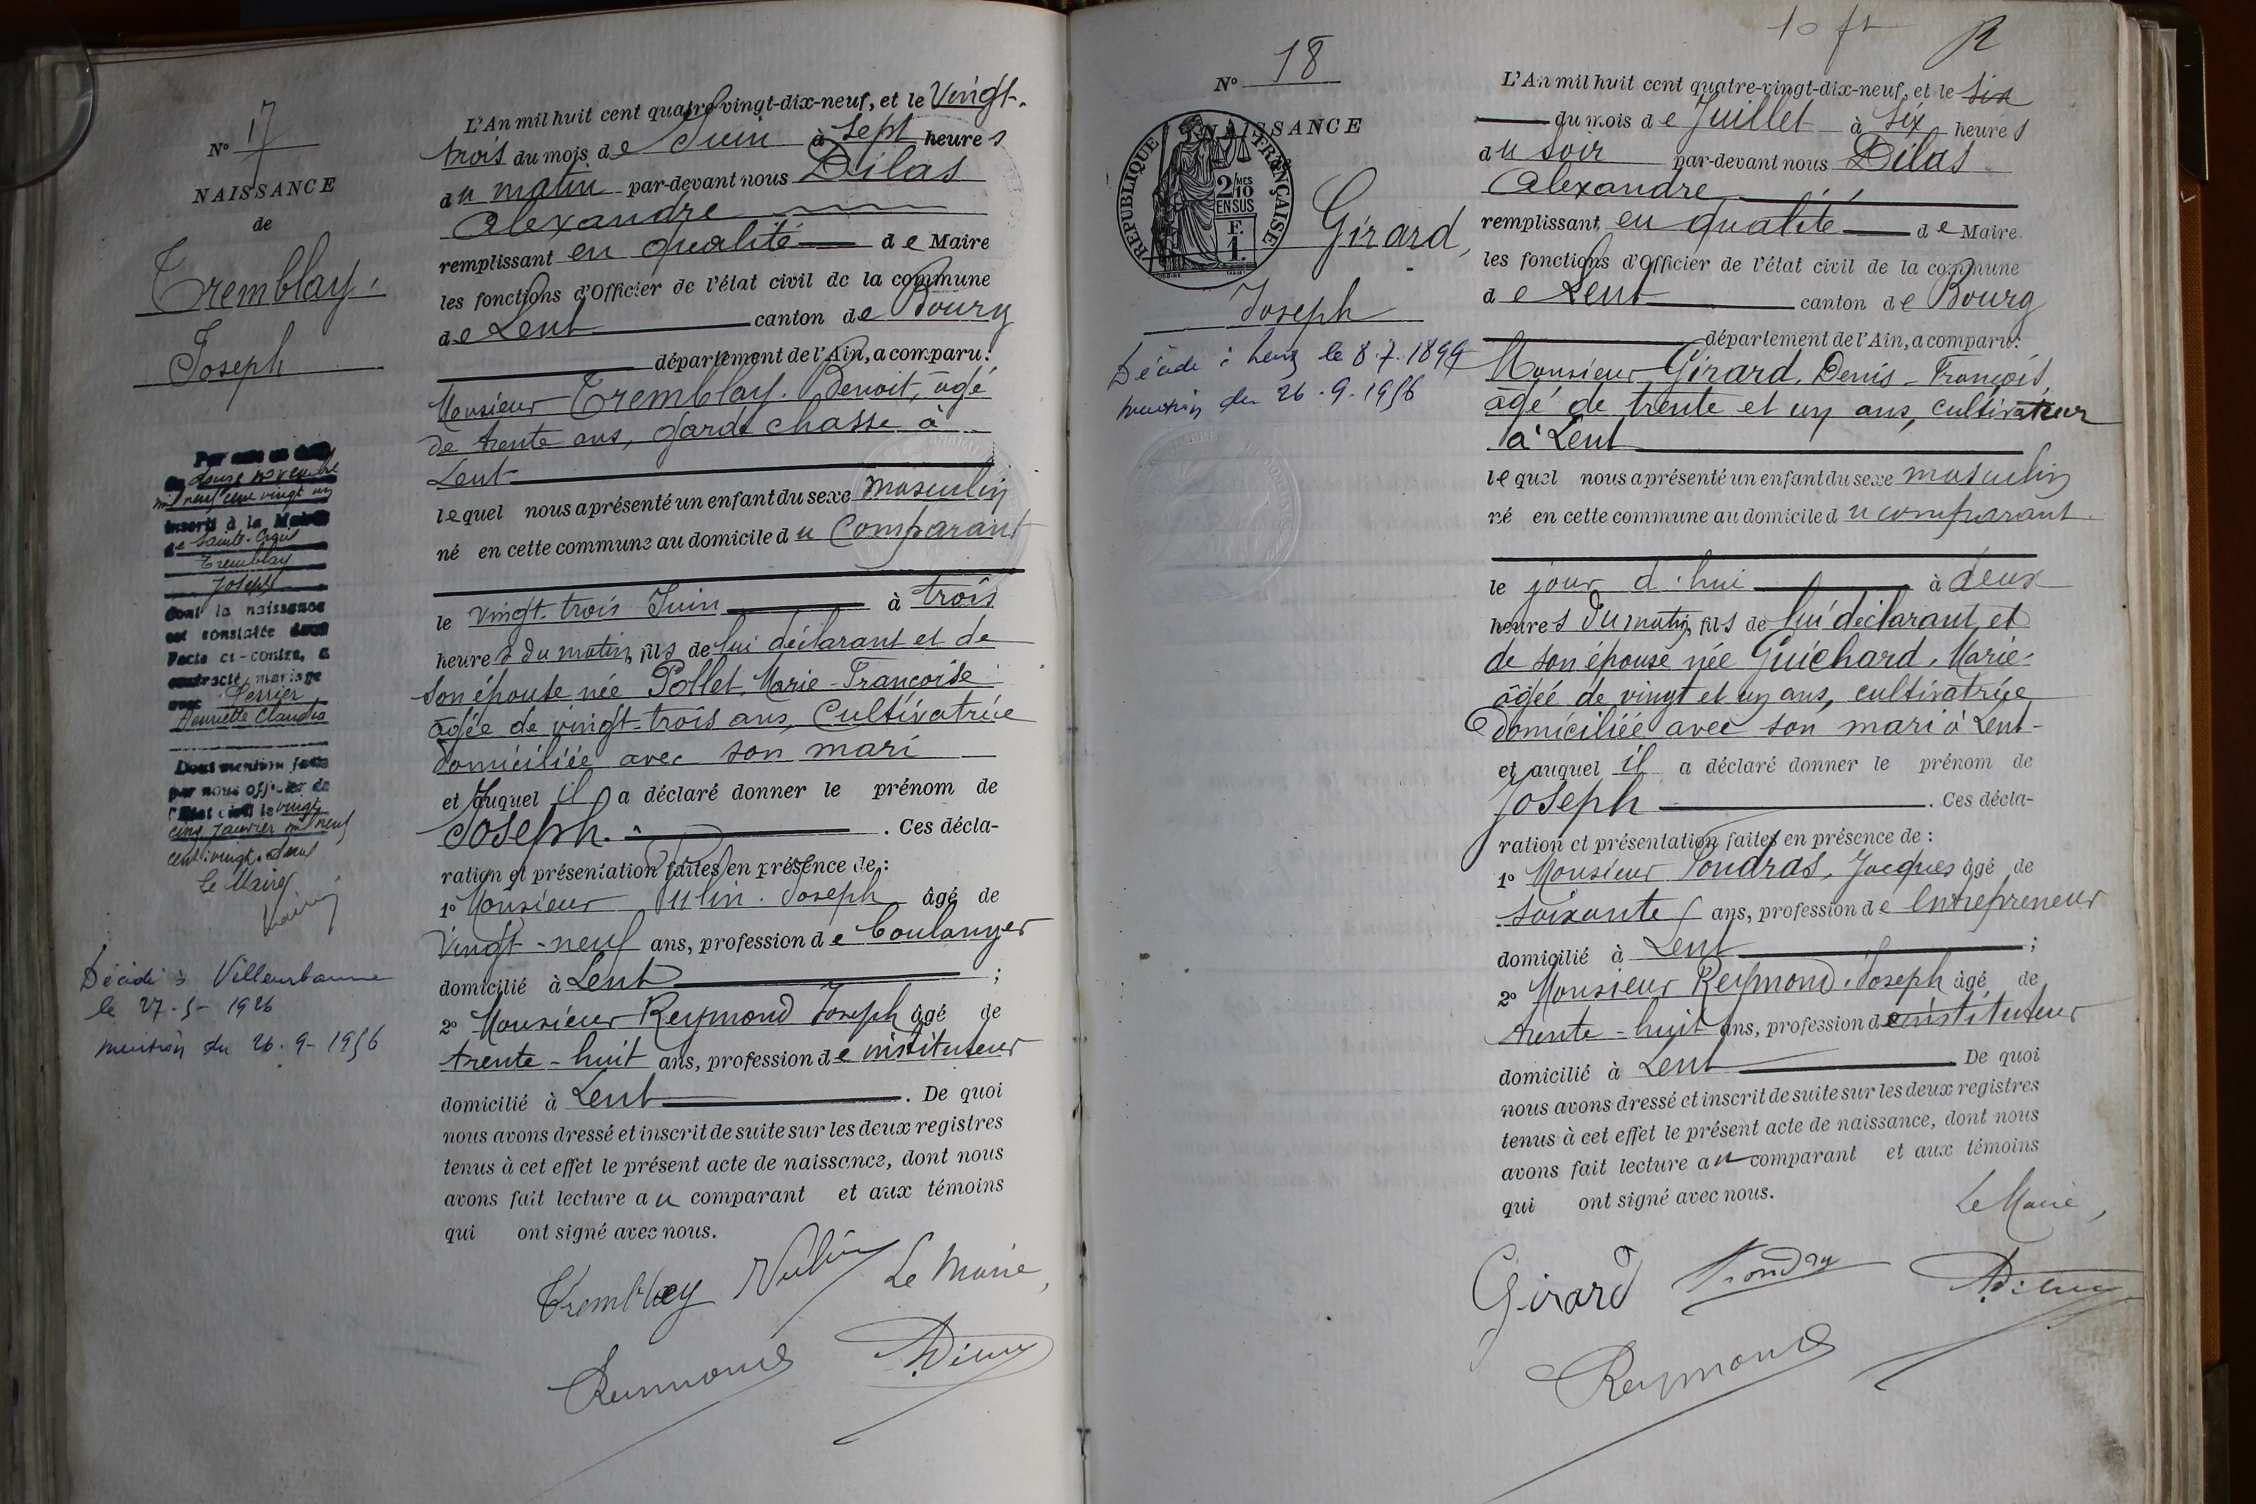 Nº 17
NAISSANCE
de
Tremblay,
Joseph
Par acte en date
du douze novembre
mil neuf cent vingt un
inscrit à la Mairie
de Sainte-
Tremblay
Joseph
dont la naissance
est constatée dans
l'acte ci-contre, a
contracté mariage
avec
Henriette Claudia
Dont mention faite
par nous officier de
l'Etat civil le vingt
cinq janvier mil neuf
cent vingt-deux
Le Maire,
Décédé à Villeurbanne
le 27-5-1926
mention du 26-9-1956
L'An mil huit cent quatre-vingt-dix-neuf, et le Vingt-
trois du mois de Juin à sept heures
du matin par-devant nous Dilas
Alexandre
remplissant en qualité de Maire
les fonctions d'Officier de l'état civil de la commune
de Lent canton de Bourg
département de l'Ain, a comparu:
Monsieur Tremblay. Benoit, âgé
de trente ans, garde chasse à
Lent
lequel nous a présenté un enfant du sexe masculin
né en cette commune au domicile du Comparant
le vingt-trois Juin à trois
heures du matin, fils de lui déclarant et de
son épouse née Pollet, Marie-Françoise
âgée de vingt-trois ans, Cultivatrice
domiciliée avec son mari
et auquel il a déclaré donner le prénom de
Joseph. . Ces décla-
ration et présentation faites en présence de :
1º Monsieur Joseph âgé de
Vingt-neuf ans, profession de boulanger
domicilié à Lent ;
2º Monsieur Reymond Joseph âgé de
trente-huit ans, profession de instituteur
domicilié à Lent . De quoi
nous avons dressé et inscrit de suite sur les deux registres
tenus à cet effet le présent acte de naissance, dont nous
avons fait lecture au comparant et aux témoins
qui ont signé avec nous.
Tremblay Le Maire,
Reymond
10 ft R
Nº 18
NAISSANCE
RÉPUBLIQUE FRANÇAISE
2/10 MES
EN SUS
F.
1.
Girard,
Joseph
Décédé à Lent le 8.7.1899
mention du 26.9.1956
L'An mil huit cent quatre-vingt-dix-neuf, et le six
du mois de Juillet à six heures
du soir par-devant nous Dilas
Alexandre
remplissant en qualité de Maire
les fonctions d'Officier de l'état civil de la commune
de Lent canton de Bourg
département de l'Ain, a comparu:
Monsieur Girard, Denis-François,
âgé de trente et un ans, cultivateur
à Lent
lequel nous a présenté un enfant du sexe masculin
né en cette commune au domicile du comparant
le jour d'hui à deux
heures du matin, fils de lui déclarant et
de son épouse née Guichard, Marie-
âgée de vingt et un ans, cultivatrice
domiciliée avec son mari à Lent-
et auquel il a déclaré donner le prénom de
Joseph . Ces décla-
ration et présentation faites en présence de :
1º Monsieur Jacques âgé de
soixante ans, profession de Entrepreneur
domicilié à Lent ;
2º Monsieur Reymond. Joseph âgé de
trente-huit ans, profession de instituteur
domicilié à Lent De quoi
nous avons dressé et inscrit de suite sur les deux registres
tenus à cet effet le présent acte de naissance, dont nous
avons fait lecture au comparant et aux témoins
qui ont signé avec nous.
Le Maire,
Girard
Reymond